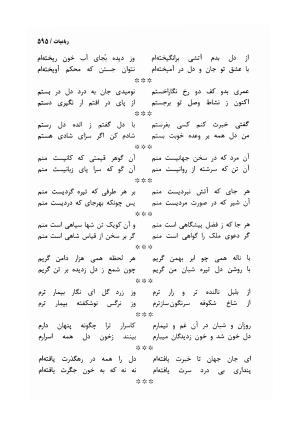 رباعیات / ۵۹۵
از دل بدم آتشی برانگیخته‌ام وز دیده بجای آب خون ریخته‌ام
با عشق تو جان و دل در آمیخته‌ام نتوان جستن که محکم آویخته‌ام
***
عمری بدو کف دو رخ نگاراخستم نومیدی جان به درد دل در بستم
اکنون ز نشاط وصل تو برجستم از پای در افتم ار نگیری دستم
***
گفتی خبرت کنم کسی بفرستم با دل گفتم ز انده دل رستم
من دل همه بر وعده خوبت بستم شادم کن اگر سزای شادی هستم
***
آن مرد که در سخن جهانیست منم آن گوهر قیمتی که کانیست منم
آن تن که سرشته از روانیست منم آن گو که سرا پای زبانیست منم
***
هر جای که آتش نبردیست منم بر هر طرفی که تیره گردیست منم
آن شیر که در صورت مردیست منم پس چونکه بهرجای که دردیست منم
***
هر جا که ز فضل پیشگاهی است منم و آن کویک تن تنها سپاهی است منم
گر دعوی ملک را گواهی است منم گر بر سخن از قیاس شاهی است منم
***
با ناله همی چو ابر بهمن گریم هر لحظه همی هزار دامن گریم
با روشن دل تیره شبان من گریم چون شمع ز دل زدیده بر تن گریم
***
از بلبل نالنده تر و زار ترم وز زرد گل ای نگار بیمار ترم
از شاخ شکوفه سرنگون‌سارترم وز نرگس نوشکفته بیمار ترم
***
روزان و شبان در آن غم و تیمارم کاسرار ترا چگونه پنهان دارم
خون شد دل و هم خون زدیدگان میبارم بینند زخون دل همه اسرارم
***
ای جان جهان تا خبرت یافته‌ام دل را همه در رهگذرت یافته‌ام
پنداری بی درد سرت یافته‌ام نه نه که به خون جگرت یافته‌ام
***